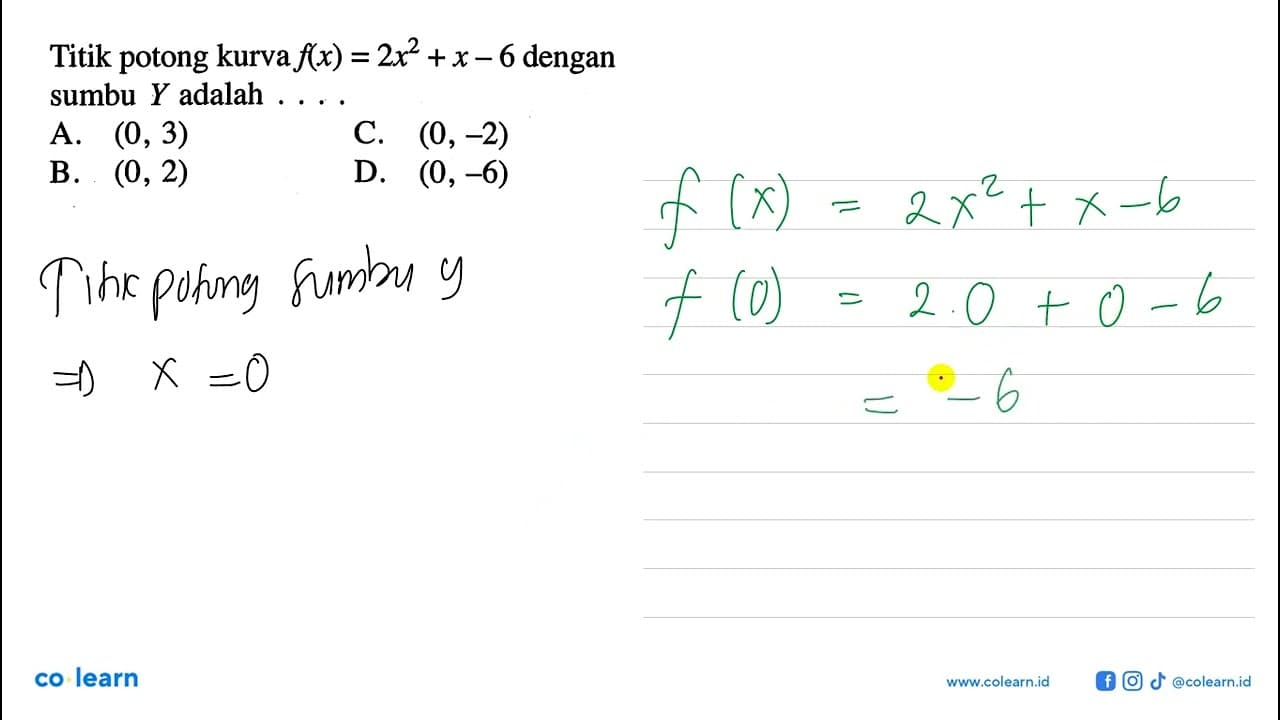 Titik potong kurva f(x) = 2x² + x – 6 dengan
sumbu Y adalah . . . .
A. (0, 3) C. (0, –2)
B. (0, 2) D. (0, –6)
Titik potong sumbu y
⇒ x = 0
f (x) = 2x² + x - 6
f (0) = 2.0 + 0 - 6
= - 6
co learn
www.colearn.id
@colearn.id